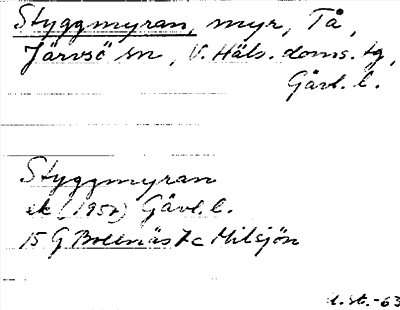 Styggmyran, myr, Tå,
Järvsö sn, V. Häls. doms. tg,
Gävl. l.
Styggmyran
ek (1957) Gävl. l.
15 G Bollnäs 7c Milsjön
l. st. -63